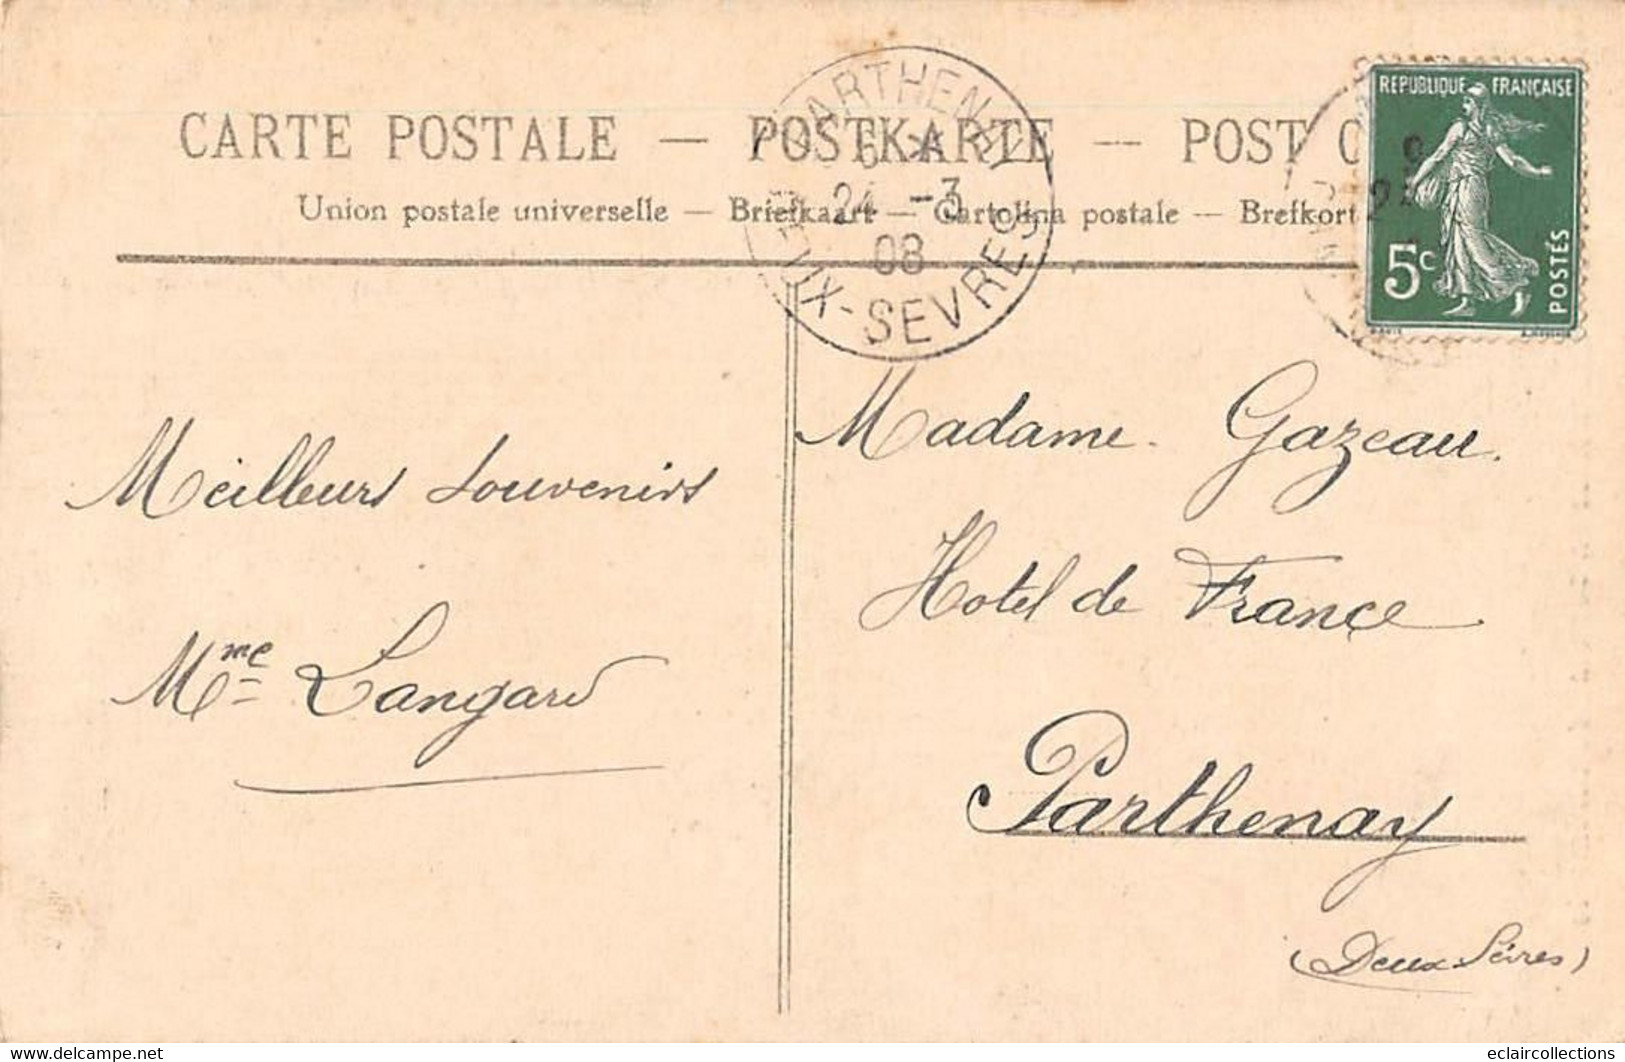 CARTE POSTALE — POSTKARTE — POST C
Union postale universelle — Briefkaart — Cartolina postale — Brefkort
PARTHENAY
24 -3
08
DEUX-SEVRES
REPUBLIQUE FRANÇAISE
5c
POSTES
Meilleurs souvenirs
Mme Langard
Madame Gazeau.
Hotel de France
Parthenay
(Deux Sèvres)
delcampe.net
eclaircollections